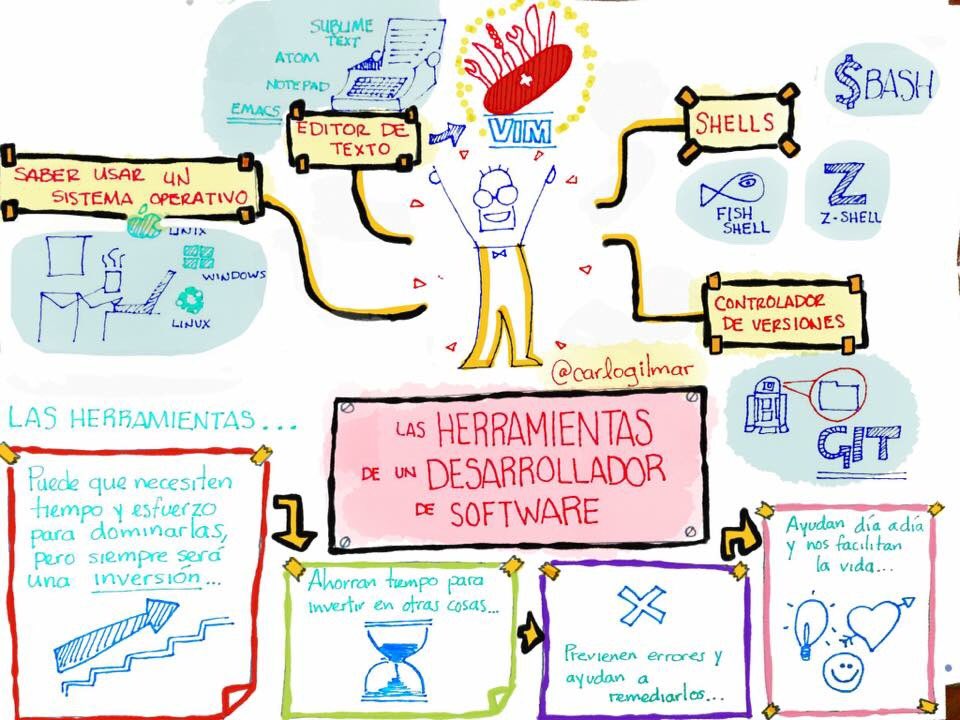 SUBLIME
TEXT
ATOM
NOTEPAD
EMACS
EDITOR DE
TEXTO
VIM
SHELLS
$BASH
FISH
SHELL
Z
Z-SHELL
SABER USAR UN
SISTEMA OPERATIVO
UNIX
WINDOWS
LINUX
CONTROLADOR
DE VERSIONES
GIT
@carlogilmar
LAS HERRAMIENTAS
DE UN DESARROLLADOR
DE SOFTWARE
LAS HERRAMIENTAS...
Puede que necesiten
tiempo y esfuerzo
para dominarlas,
pero siempre será
una inversión...
Ahorran tiempo para
invertir en otras cosas...
Previenen errores y
ayudan a
remediarlos...
Ayudan día a día
y nos facilitan
la vida...